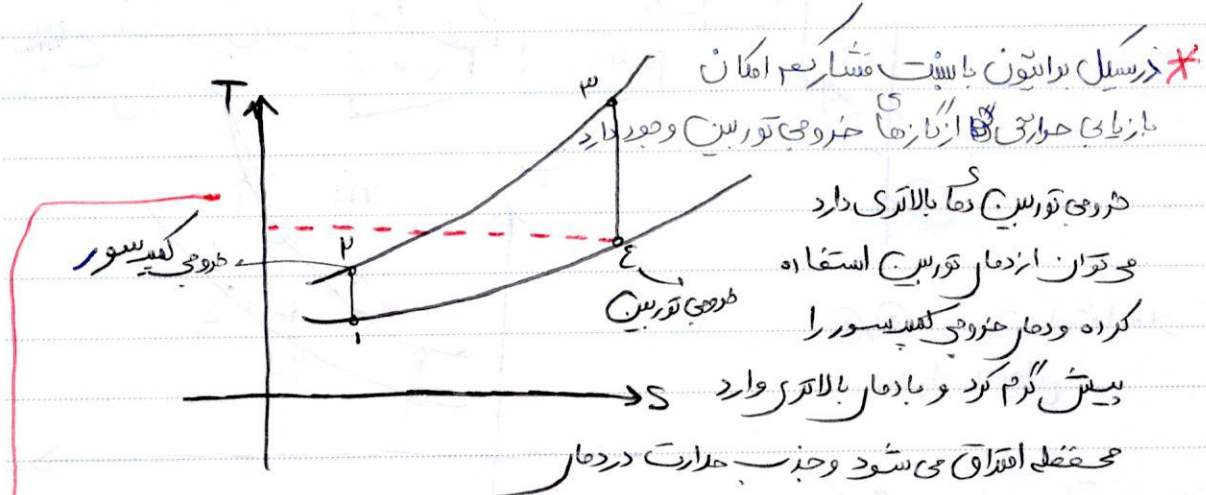 * در سیکل برایتون با نسبت فشار کم امکان
بازیابی حرارتی از گازهای خروجی توربین وجود دارد
خروجی توربین دمای بالاتری دارد
می توان از دمای توربین استفاده
کرده و دمای خروجی کمپرسور را
پیش گرم کرد و با دمای بالاتری وارد
محفظه احتراق می شود و جذب حرارت در دمای
T
۳
۲
خروجی کمپرسور
۴
۱
خروجی توربین
S